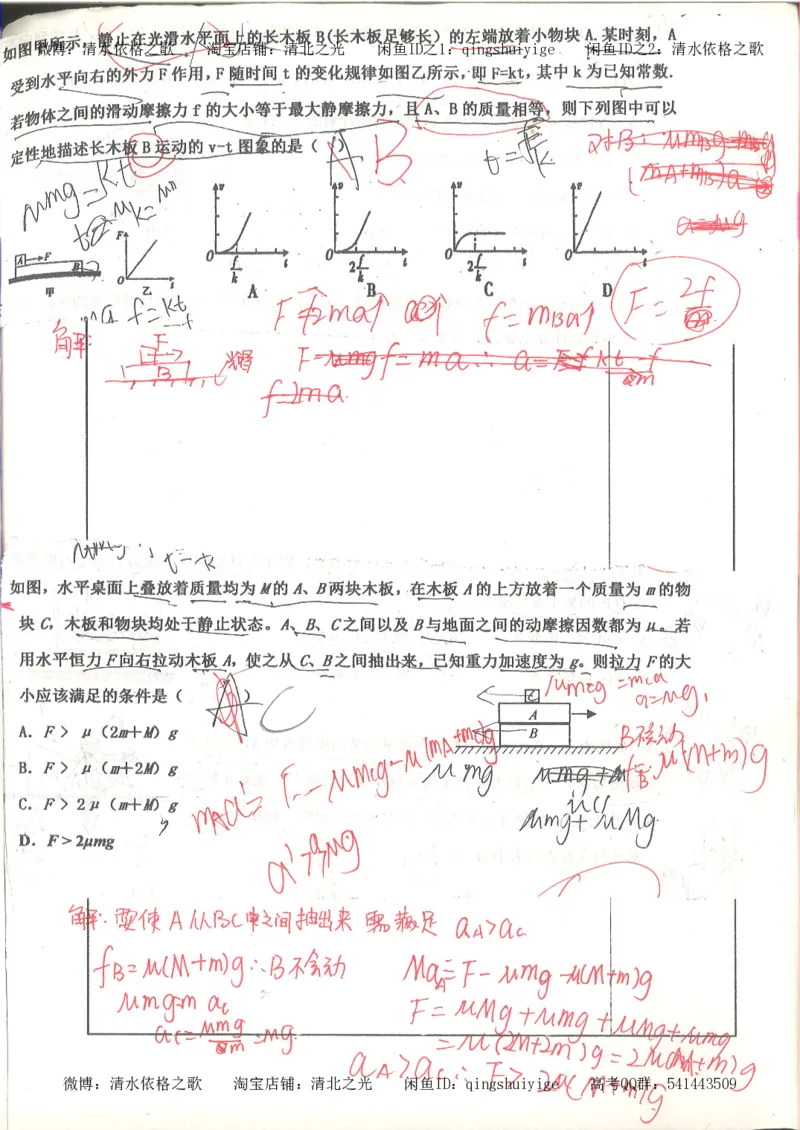 如图甲所示，静止在光滑水平面上的长木板B(长木板足够长）的左端放着小物块 A.某时刻，A
微博：清水依格之歌 淘宝店铺：清北之光 闲鱼ID之1：qingshuiyige 闲鱼ID之2：清水依格之歌
受到水平向右的外力 F 作用，F 随时间 t 的变化规律如图乙所示，即 F=kt，其中 k 为已知常数.
若物体之间的滑动摩擦力 f 的大小等于最大静摩擦力，且 A、B 的质量相等，则下列图中可以
定性地描述长木板 B 运动的 v-t 图象的是（ ）
B
μmg=kt
A F B
甲
F
O t
乙
v
O f/k t
A
v
O 2f/k t
B
v
O 2f/k t
C
v
O t
D
a=μg
F=2ma↑ a↑ f=mBa↑ F=2f
解:
F
B
光滑
F-μmg f=ma∴ a=F-f kt-f
f=2ma
如图，水平桌面上叠放着质量均为 M 的 A、B 两块木板，在木板 A 的上方放着一个质量为 m 的物
块 C，木板和物块均处于静止状态。A、B、C 之间以及 B 与地面之间的动摩擦因数都为 μ。若
用水平恒力 F 向右拉动木板 A，使之从 C、B 之间抽出来，已知重力加速度为 g。则拉力 F 的大
小应该满足的条件是（ ）
C
μmcg=mca
a=μg,
C
A
B
A．F > μ（2m+M）g
B．F > μ（m+2M）g
C．F > 2μ（m+M）g
D．F > 2μmg
B不会动
μ(M+m)g
μmg
μmg+μMg
mAa'=F-μmcg-μ(mA+mc)g
a'>μg
解:要使A从BC中之间抽出来 需满足 aA>ac
fB=μ(M+m)g∴B不会动
MaA=F-μmg-μ(M+m)g
μmg=m ac
F=μMg+μmg+μMg+μmg
ac=μmg/m=μg
=μ(2M+2m)g=2μ(M+m)g
aA>ac∴F>2μ(M+m)g
微博：清水依格之歌 淘宝店铺：清北之光 闲鱼ID：qingshuiyige 高考QQ群：541443509